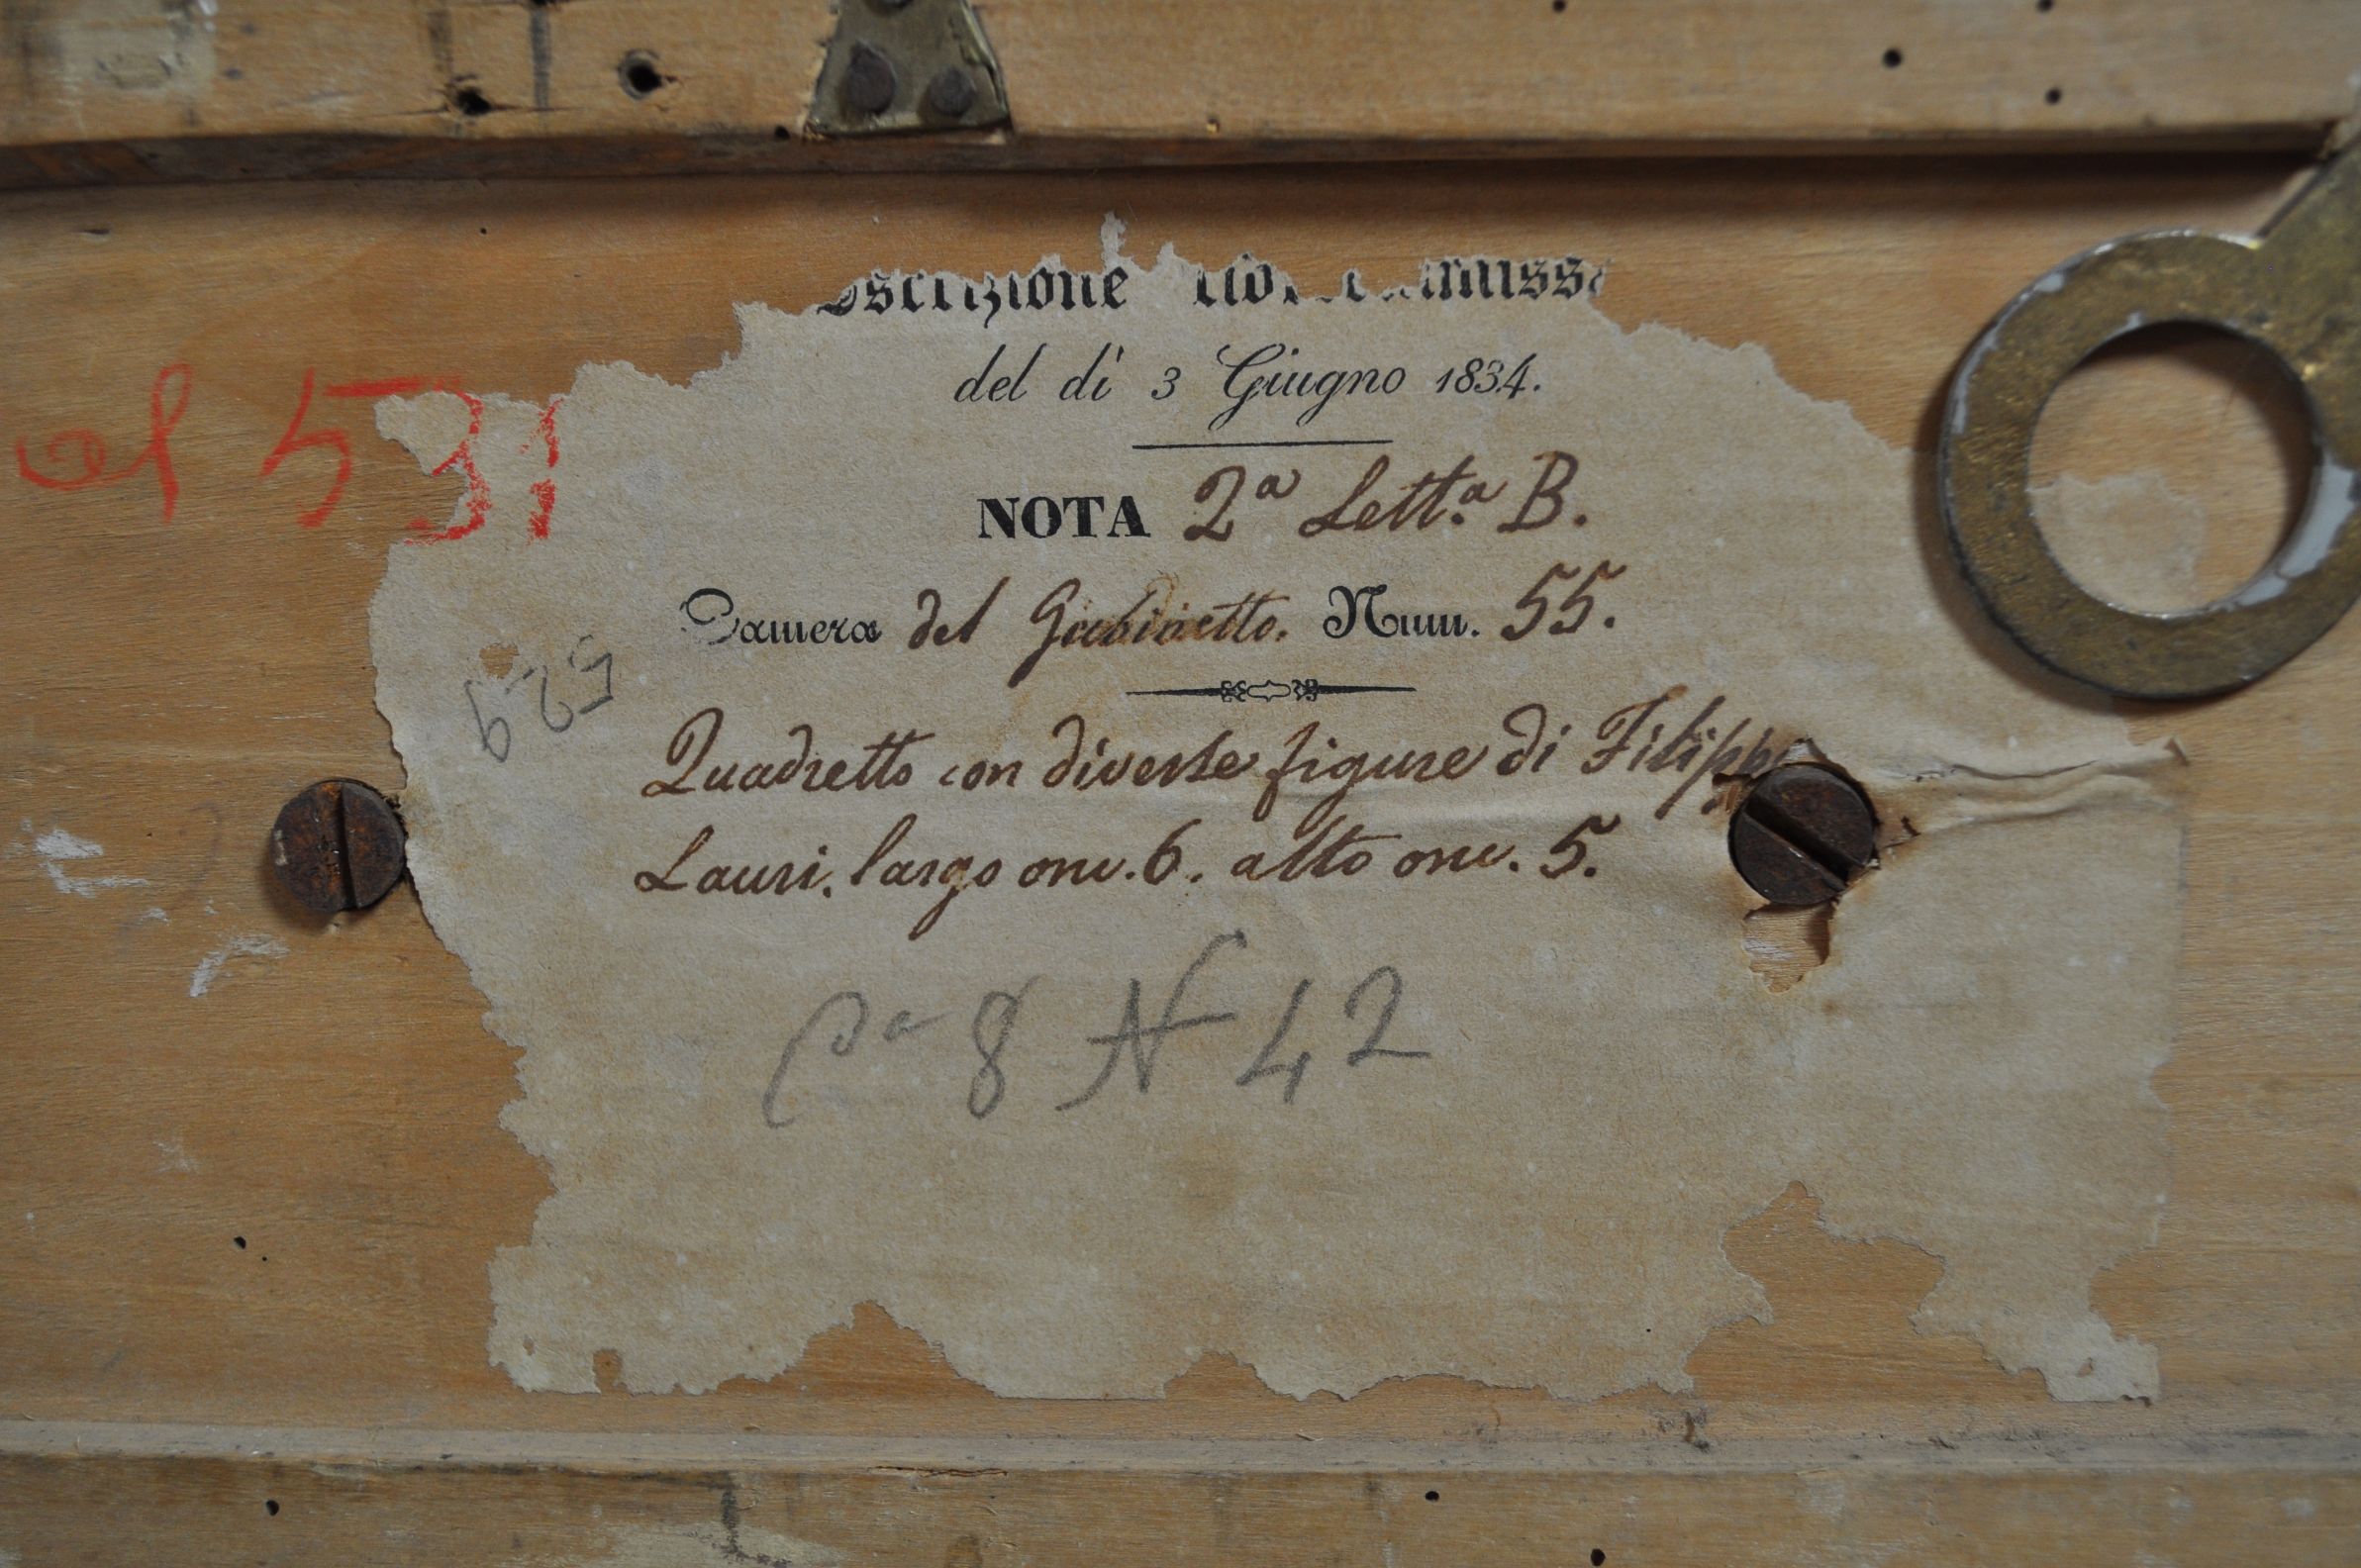 del dì 3 Giugno 1834.
NOTA 2ª Lett.ª B.
Camera del Gabinetto. Num. 55.
Quadretto con diverse figure di Filippo
Lauri. largo onc. 6. alto onc. 5.
Cª 8 N 42
529
531